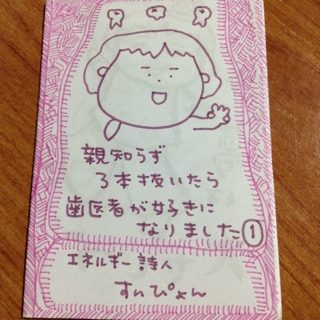 親知らず
3本抜いたら
歯医者が好きに
なりました①
エネルギー詩人
すいぴょん